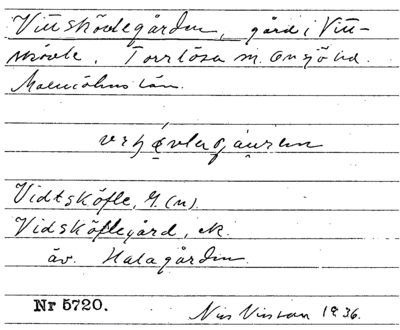 Vittskövlegården, gård i Vitt-
skövle, Torrlösa sn. Onsjö hd.
Malmöhus län.
Vidtsköfle, G. (n).
Vidsköflegård, ek.
äv. Halagården
Nr 5720.
Nils Nilsson 1936.